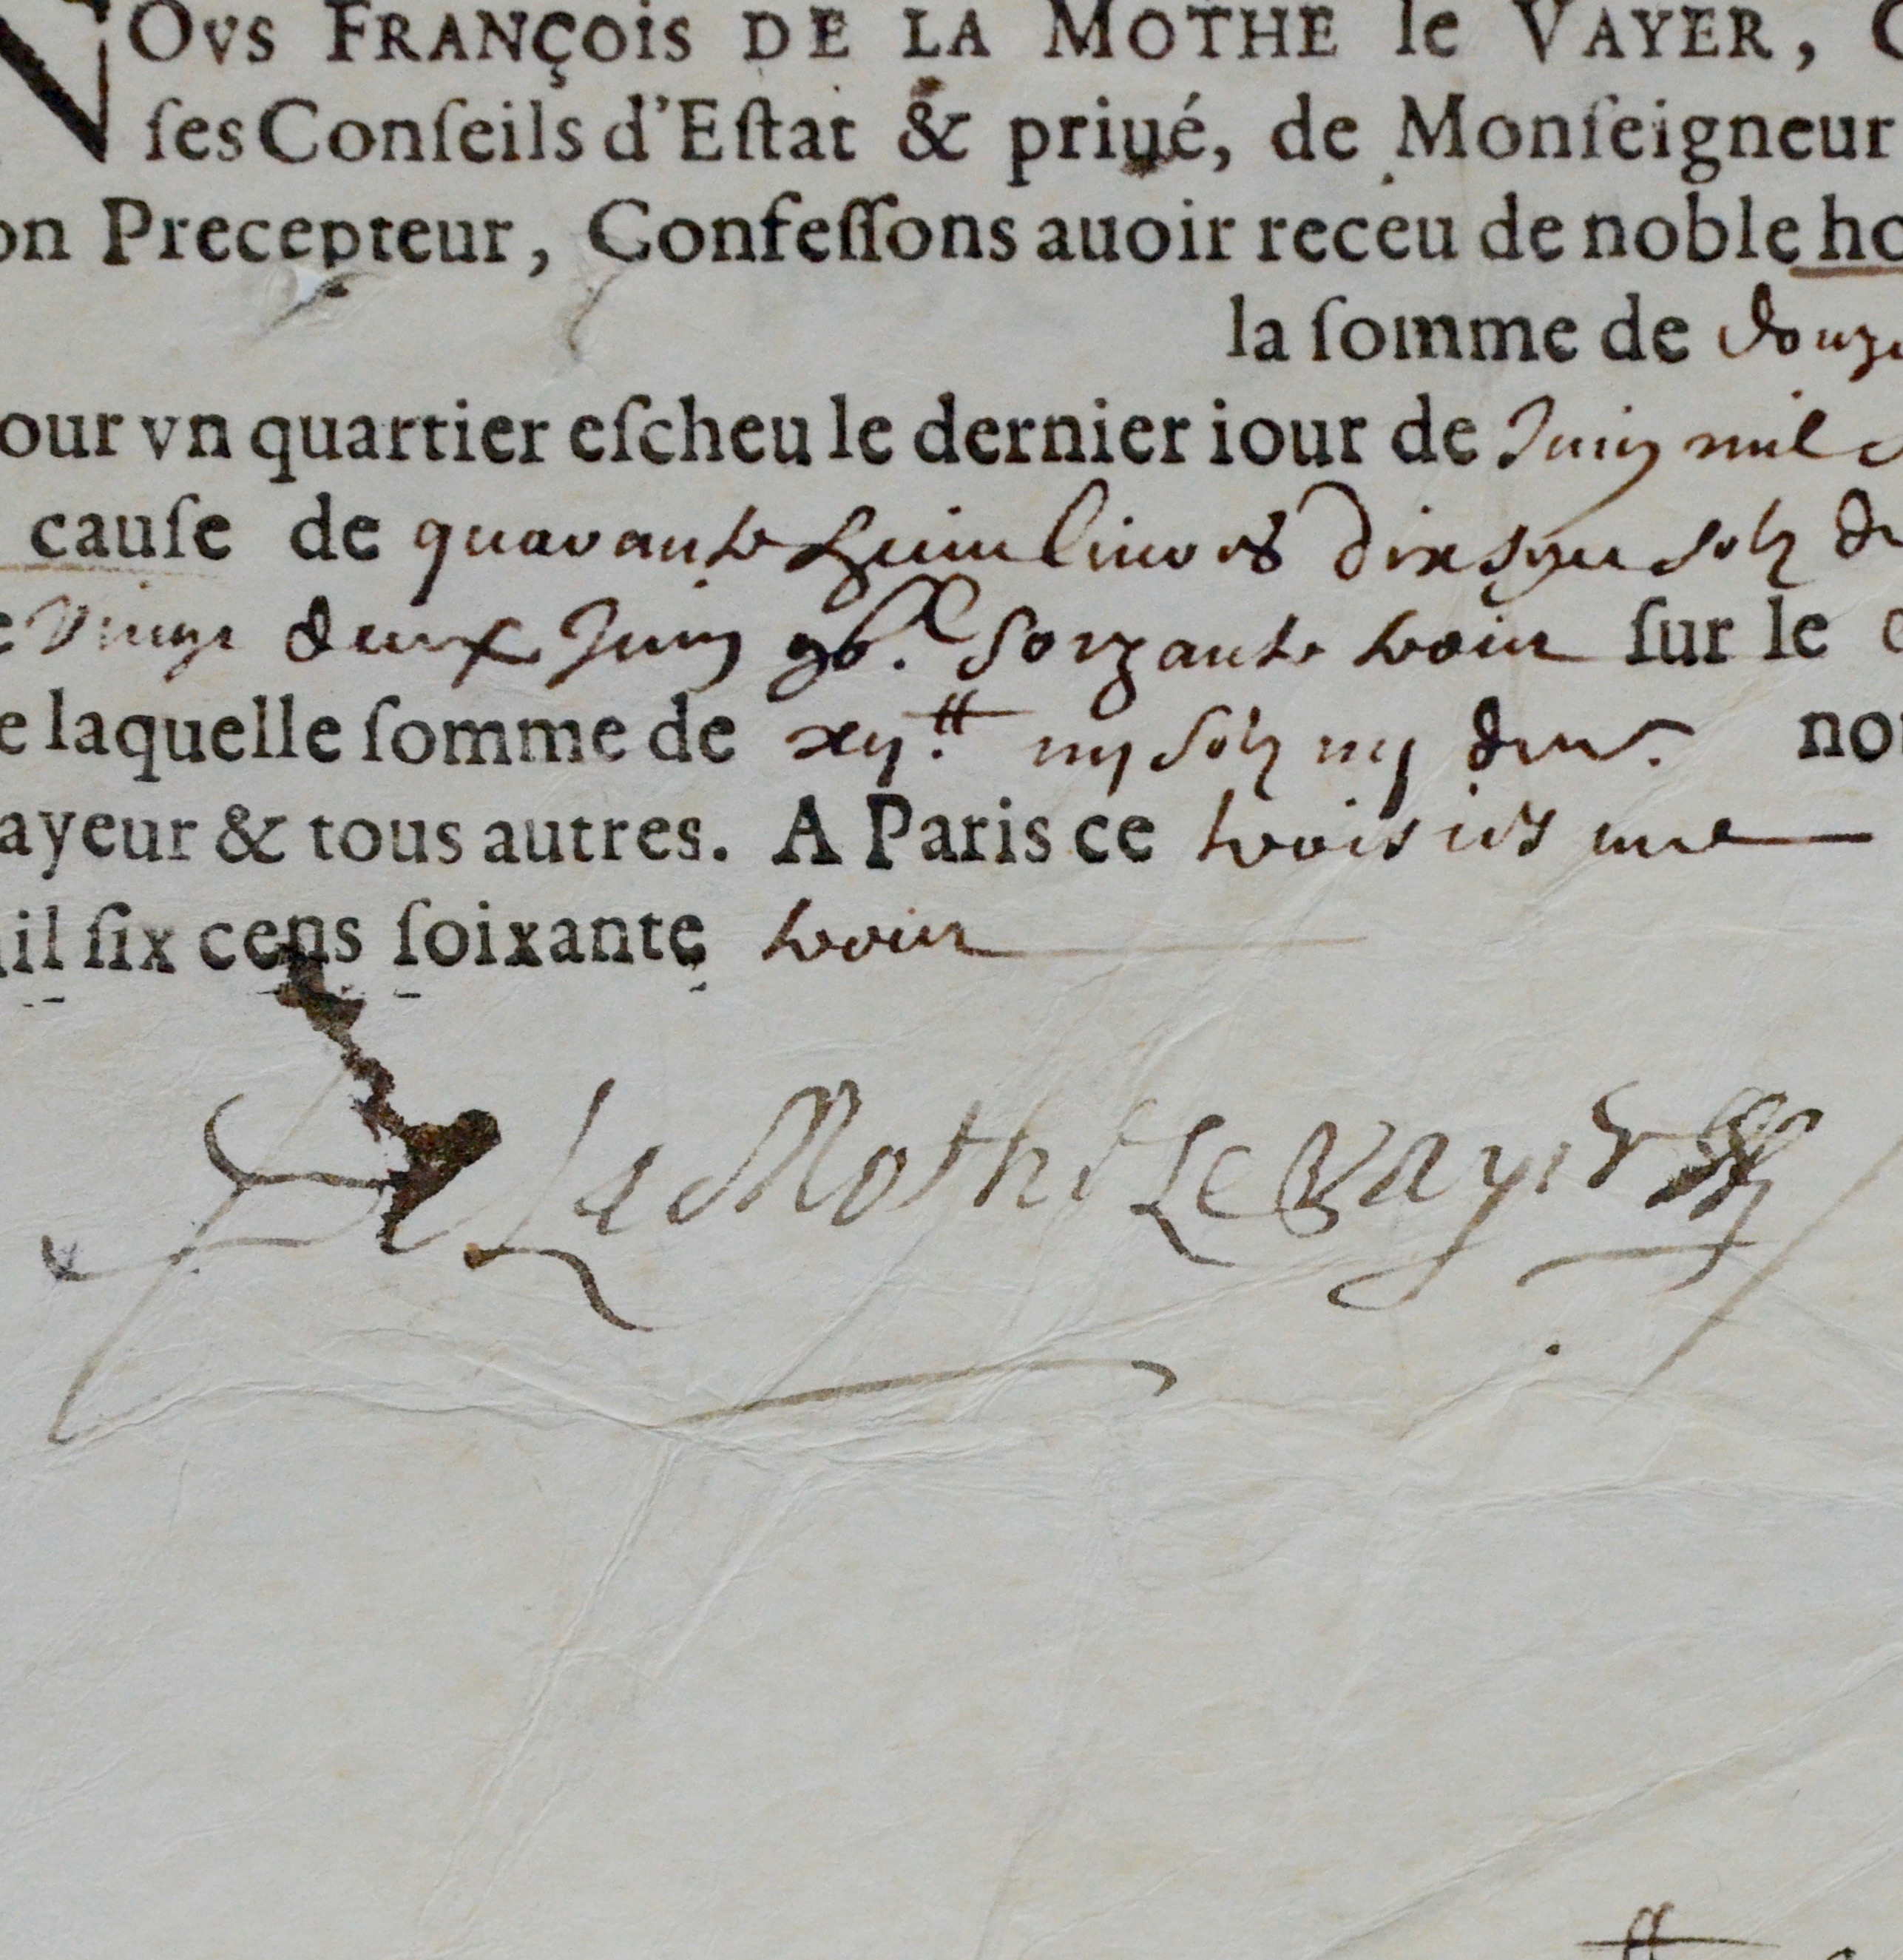 NOVS FRANÇOIS DE LA MOTHE le VAYER, C
ſes Conſeils d'Eſtat & priué, de Monſeigneur
on Precepteur, Confeſſons auoir receu de noble ho
la ſomme de douze
our vn quartier eſcheu le dernier iour de Juin mil
cauſe de quarante huict liures dix sept solz de
vingt deux Juin soixante trois ſur le
e laquelle ſomme de xij.tt iiij solz iiij den. no
ayeur & tous autres. A Paris ce troisiesme
il ſix cens ſoixante trois
De La Mothe Le Vayer
tt